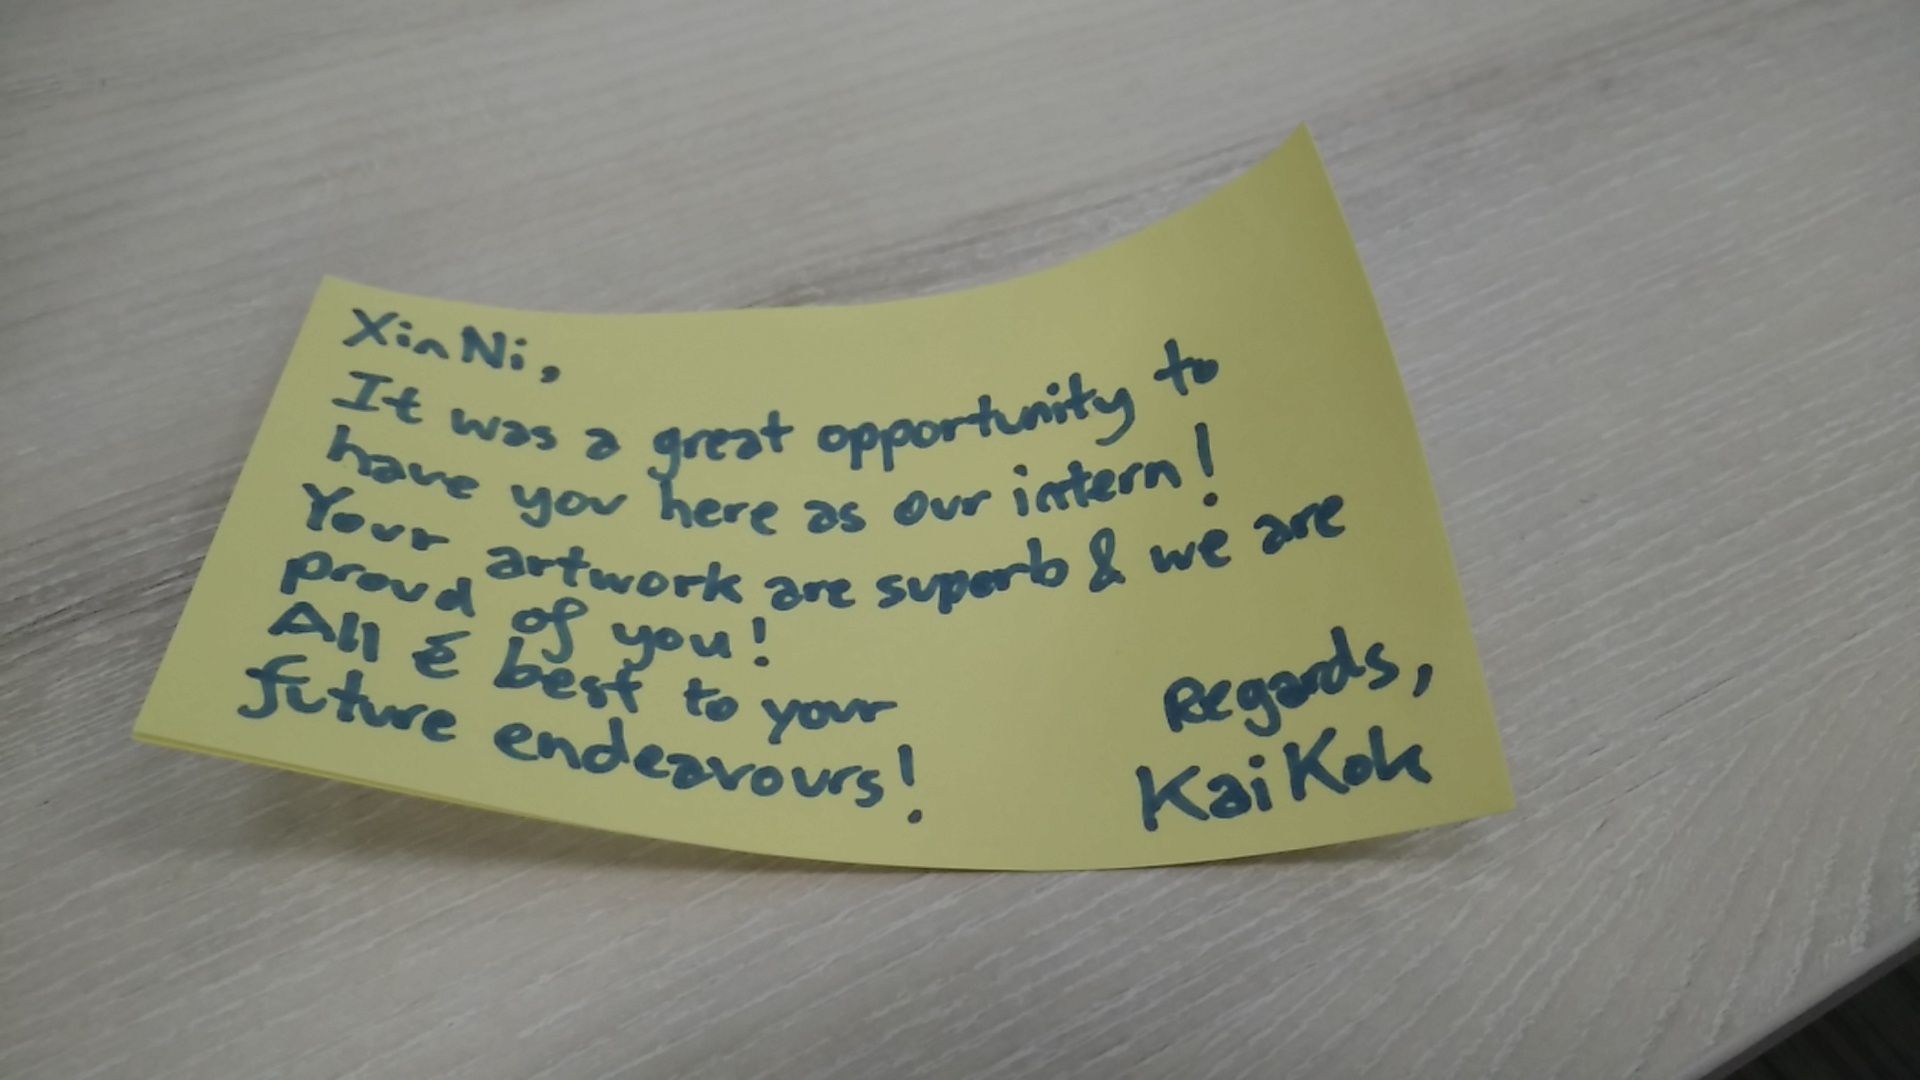 Xin Ni,
It was a great opportunity to
have you here as our intern!
Your artwork are superb & we are
proud of you!
All & best to your
future endeavours!
Regards,
Kai Kok